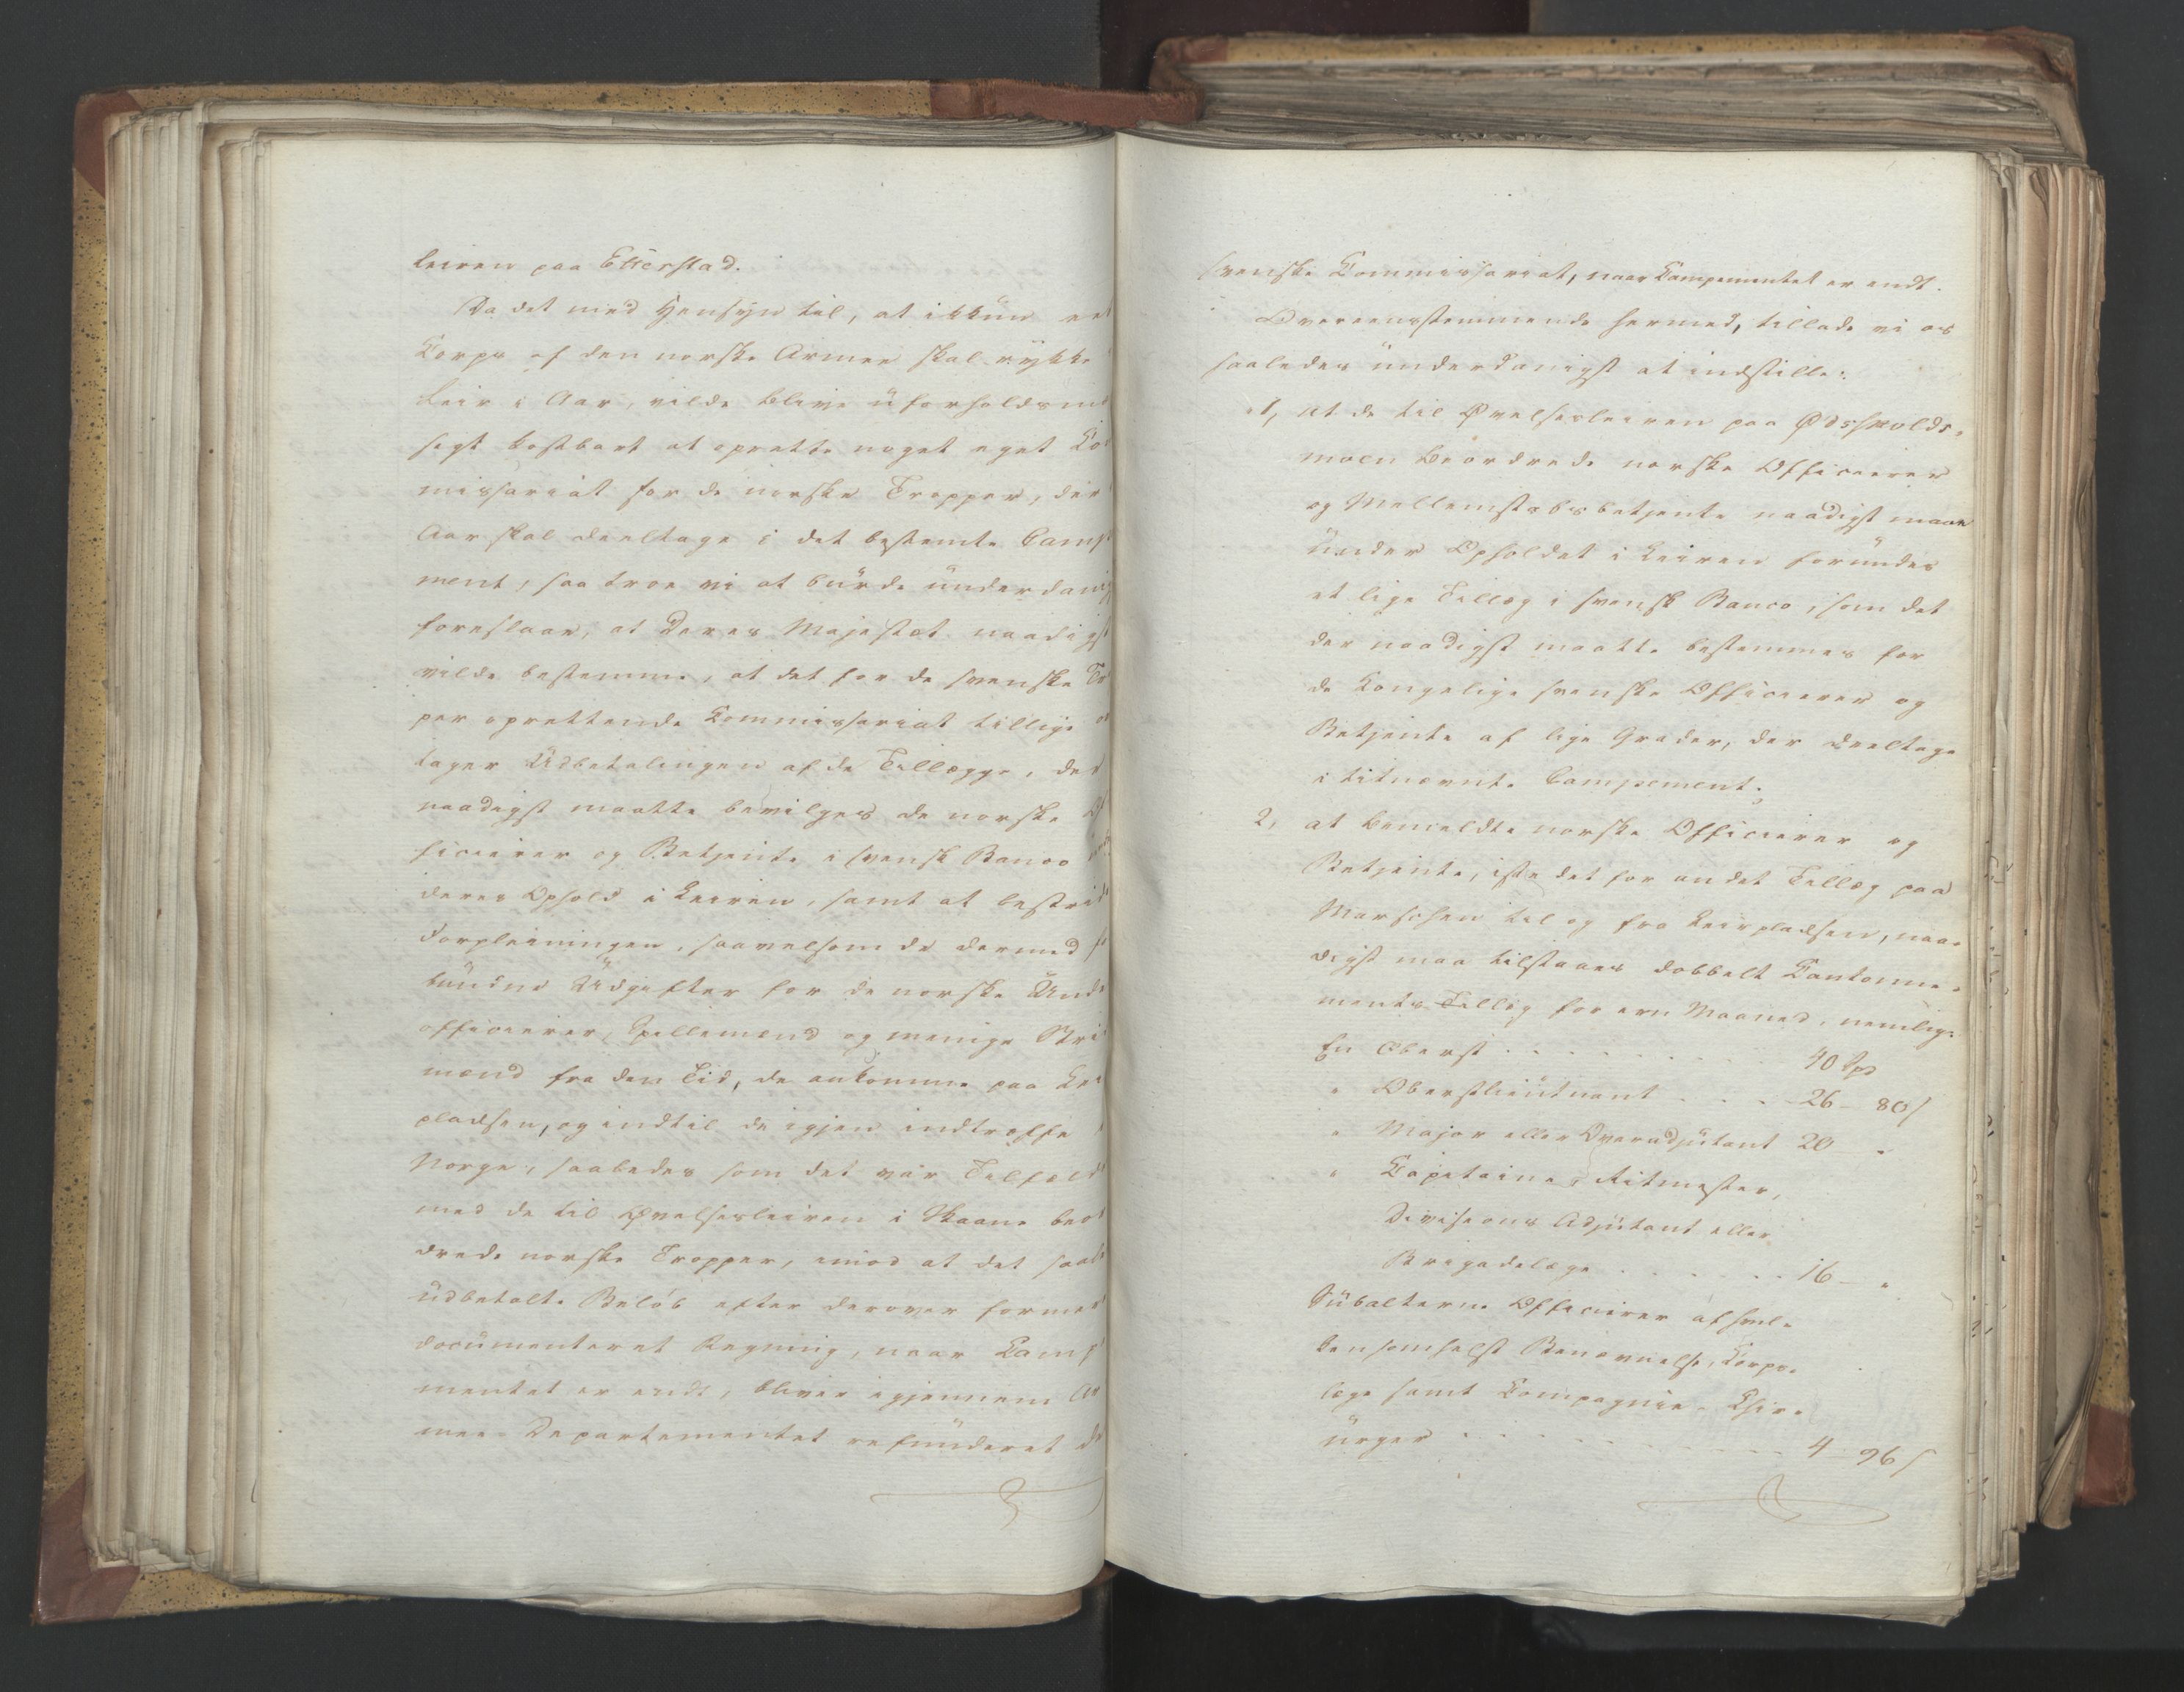 Leiren paa Etterstad.
Da det med Hensyn til, at ikkun eet
Corps af den norske Armee skal rykke
Leir i Aar, vilde blive uforholdsmæ
sigt kostbart at oprette noget eget Co
missariat for de norske Tropper, der
Aar skal deeltage i det bestemte Camp
ment, saa troe vi at burde underdanig
foreslaae, at Deres Majestæt naadigst
vilde bestemme, at det for de svenske Tr
per oprettende Commissariat tillige o
tager Udbetalingen af de Tillægge, der
naadigst maatte bevilges de norske Of
ficierer og Betjente i svensk Banco
deres Ophold i Leiren, samt at bestride
Forpleiningen, saavelsom de dermed fo
bundne Udgifter for de norske Unde
officierer, Spillemænd og menige Stri
mænd fra den Tid, de ankomme paa Lei
pladsen, og indtil de igjen indtræffe
Norge, saaledes som det var Tilfæld
med de til Øvelsesleiren i Skaane beor
drede norske Tropper, imod at det saal
udbetalte Beløb efter derover formeret
documenteret Regning, naar Camp
mentet er endt, bliver igjennem Ar
mee-Departementet refunderet de
svenske Commissariat, naar Campementet er endt.
Overeensstemmende hermed, tillade vi os
saaledes underdanigst at indstille:
1, at de til Øvelsesleiren paa
moen beordrede norske Officierer
og Mellemstabsbetjente naadigst maae
under Opholdet i Leiren forundes
et lige Tillæg i svensk Banco, som det
der naadigst maatte bestemmes for
de Kongelige svenske Officierer og
Betjente af lige Grader, der deeltage
i titnævnte Campement;
2, at bemeldte norske Officierer og
Betjente, istedet for andet Tillæg paa
Marschen til og fra Leirpladsen, naa-
digst maa tilstaaes dobbelt Cantonne-
ments-Tillæg for een Maaned, nemlig:
En Oberst . . . . . . . 40 Spd
" Oberstlieutnant . . . . 26 - 80 s
" Major eller Overadjutant 20 "
" Capitaine, Ritmester,
Divisions Adjutant eller
Brigadelæge . . . . . . 16 - "
Subalterne Officierer af hvil-
ken somhelst Benævnelse, Corps-
læge samt Compagnie-Chir-
urger . . . . . . . . 4 - 96 s